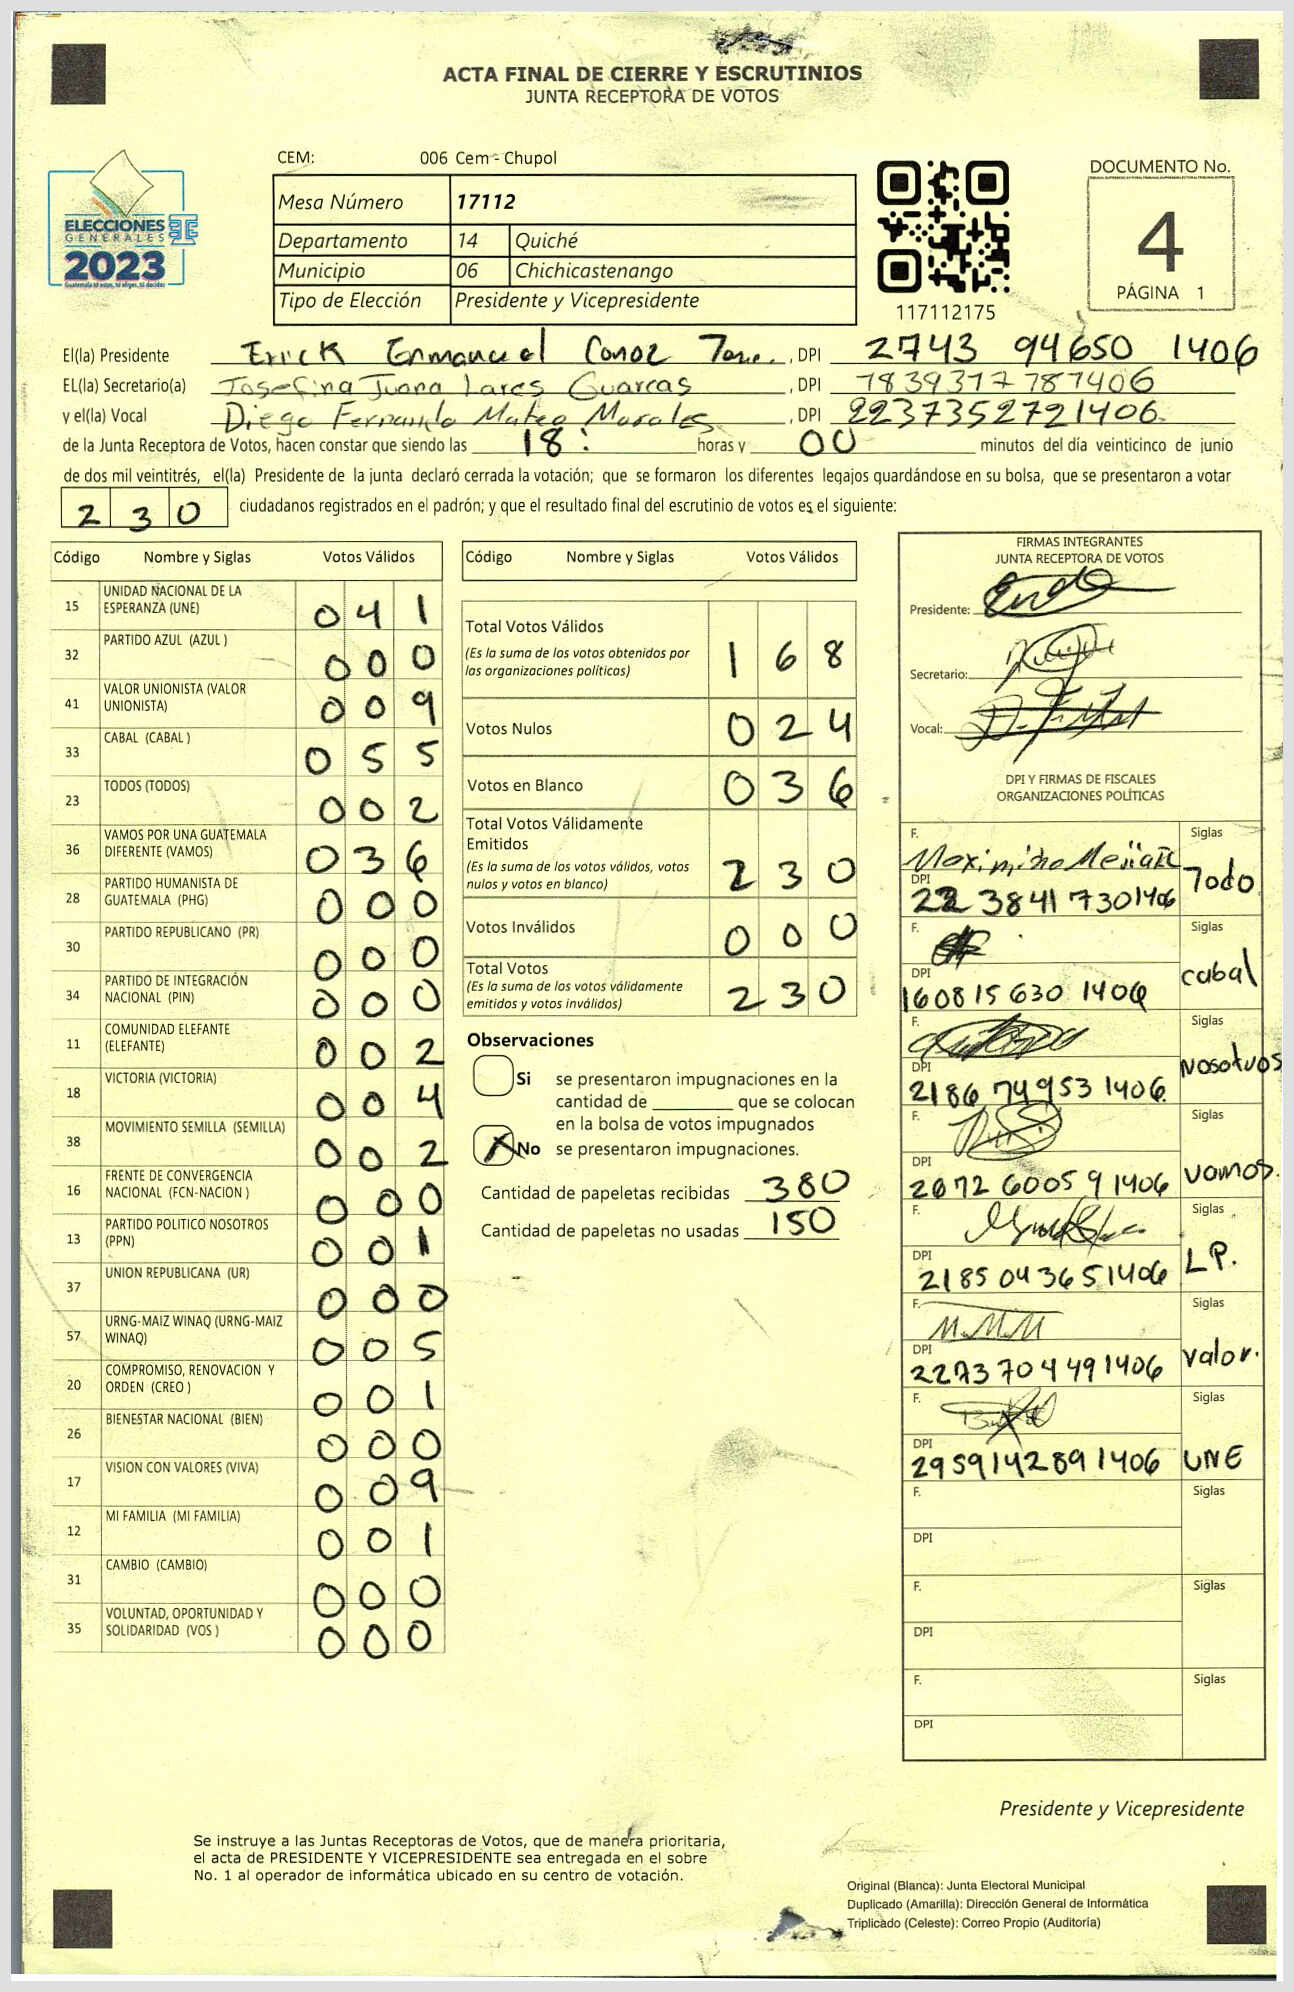 ACTA FINAL DE CIERRE Y ESCRUTINIOS
JUNTA RECEPTORA DE VOTOS
CEM: 006 Cem - Chupol
Mesa Número 17112
Departamento 14 Quiché
Municipio 06 Chichicastenango
Tipo de Elección Presidente y Vicepresidente
ELECCIONES
GENERALES
2023
117112175
DOCUMENTO No.
4
PÁGINA 1
El(la) Presidente Erick Enmanuel , DPI 2743 94650 1406
EL(la) Secretario(a) Josefina Juana Lares Guarcas , DPI 7839377787406
y el(la) Vocal Diego Fernando Mateo Morales , DPI 2237352721406
de la Junta Receptora de Votos, hacen constar que siendo las 18: horas y 00 minutos del día veinticinco de junio
de dos mil veintitrés, el(la) Presidente de la junta declaró cerrada la votación; que se formaron los diferentes legajos guardándose en su bolsa, que se presentaron a votar
230 ciudadanos registrados en el padrón; y que el resultado final del escrutinio de votos es el siguiente:
Código Nombre y Siglas Votos Válidos
15 UNIDAD NACIONAL DE LA ESPERANZA (UNE) 041
32 PARTIDO AZUL (AZUL ) 000
41 VALOR UNIONISTA (VALOR UNIONISTA) 009
33 CABAL (CABAL ) 055
23 TODOS (TODOS) 002
36 VAMOS POR UNA GUATEMALA DIFERENTE (VAMOS) 036
28 PARTIDO HUMANISTA DE GUATEMALA (PHG) 000
30 PARTIDO REPUBLICANO (PR) 000
34 PARTIDO DE INTEGRACIÓN NACIONAL (PIN) 000
11 COMUNIDAD ELEFANTE (ELEFANTE) 002
18 VICTORIA (VICTORIA) 004
38 MOVIMIENTO SEMILLA (SEMILLA) 002
16 FRENTE DE CONVERGENCIA NACIONAL (FCN-NACION ) 000
13 PARTIDO POLITICO NOSOTROS (PPN) 001
37 UNION REPUBLICANA (UR) 000
57 URNG-MAIZ WINAQ (URNG-MAIZ WINAQ) 005
20 COMPROMISO, RENOVACION Y ORDEN (CREO ) 001
26 BIENESTAR NACIONAL (BIEN) 000
17 VISION CON VALORES (VIVA) 009
12 MI FAMILIA (MI FAMILIA) 001
31 CAMBIO (CAMBIO) 000
35 VOLUNTAD, OPORTUNIDAD Y SOLIDARIDAD (VOS ) 000
Código Nombre y Siglas Votos Válidos
Total Votos Válidos 168
(Es la suma de los votos obtenidos por
las organizaciones políticas)
Votos Nulos 024
Votos en Blanco 036
Total Votos Válidamente
Emitidos 230
(Es la suma de los votos válidos, votos
nulos y votos en blanco)
Votos Inválidos 000
Total Votos 230
(Es la suma de los votos válidamente
emitidos y votos inválidos)
Observaciones
Si se presentaron impugnaciones en la
cantidad de ________ que se colocan
en la bolsa de votos impugnados
X No se presentaron impugnaciones.
Cantidad de papeletas recibidas 380
Cantidad de papeletas no usadas 150
FIRMAS INTEGRANTES
JUNTA RECEPTORA DE VOTOS
Presidente:
Secretario:
Vocal:
DPI Y FIRMAS DE FISCALES
ORGANIZACIONES POLÍTICAS
F. Siglas
DPI 22 3841 7301406 Todo
F. Siglas
DPI 160815630 1406 cabal
F. Siglas
DPI 2186 74953 1406 Nosotros
F. Siglas
DPI 2072 60059 1406 vamos.
F. Siglas
DPI 2185 04365 1406 LP.
F. Siglas
DPI 2273704491406 valor.
F. Siglas
DPI 2959142891406 UNE
F. Siglas
DPI
F. Siglas
DPI
F. Siglas
DPI
Presidente y Vicepresidente
Se instruye a las Juntas Receptoras de Votos, que de manera prioritaria,
el acta de PRESIDENTE Y VICEPRESIDENTE sea entregada en el sobre
No. 1 al operador de informática ubicado en su centro de votación.
Original (Blanca): Junta Electoral Municipal
Duplicado (Amarilla): Dirección General de Informática
Triplicado (Celeste): Correo Propio (Auditoría)